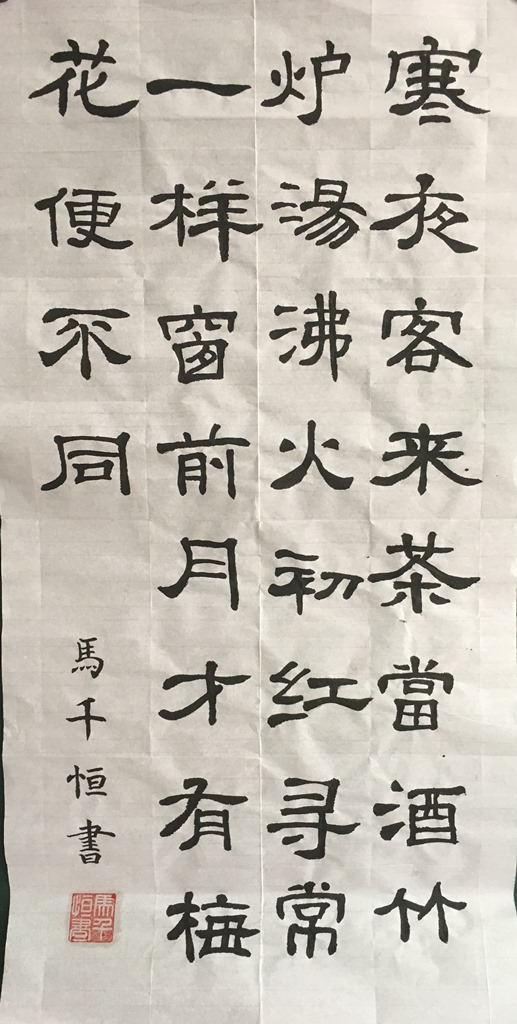 寒夜客来茶當酒竹
炉湯沸火初红寻常
一样窗前月才有梅
花便不同
馬千恒書
馬千恒書